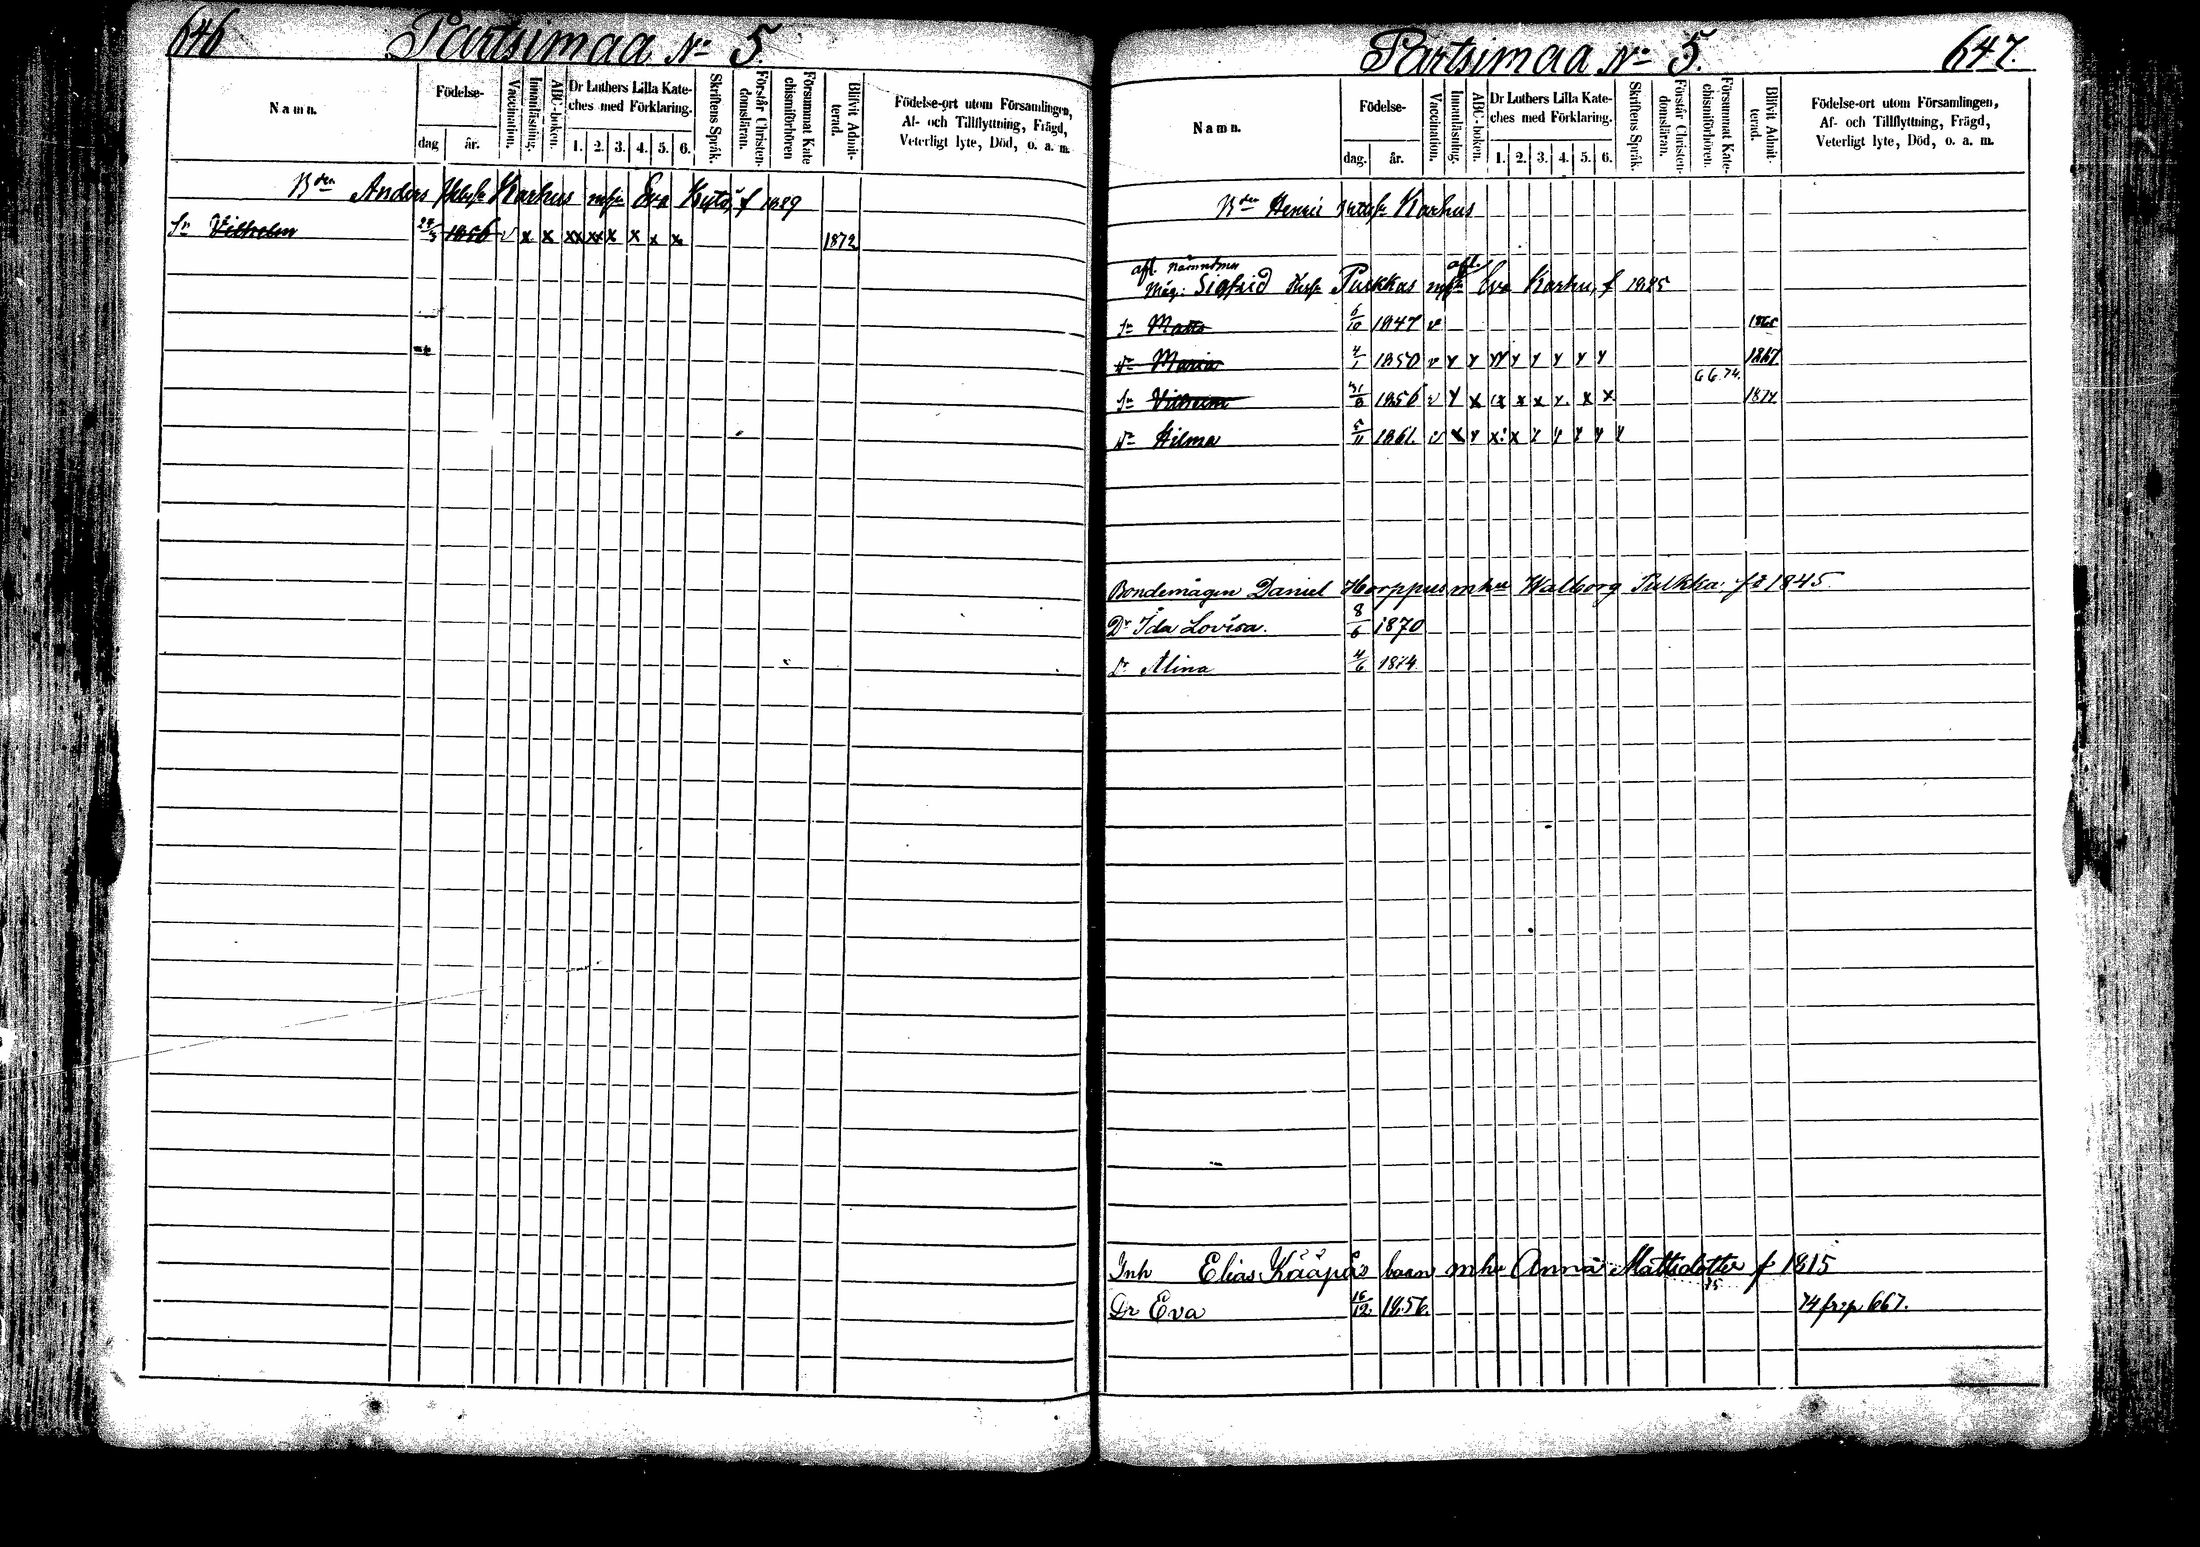 646
Partsimaa No 5.
Namn.
Födelse-
dag
år.
Vaccination.
Innanläsning.
ABC-boken.
Dr Luthers Lilla Kate-
ches med Förklaring.
1. 2. 3. 4. 5. 6.
Skriftens Språk.
Förstår Christen-
domsläran.
Försummat Kate
chismiförhören
Blifvit Admit-
terad.
Födelse-ort utom Församlingen,
Af- och Tillflyttning, Frägd,
Veterligt lyte, Död, o. a. m.
Bden Anders Karhus Eva f 1829
Sn Vilhelm 1856 v x x xx xx x x x x 1872
Partsimaa No 5.
647.
Namn.
Födelse-
dag.
år.
Vaccination.
Innanläsning.
ABC-boken.
Dr Luthers Lilla Kate-
ches med Förklaring.
1. 2. 3. 4. 5. 6.
Skriftens Språk.
Förstår Christen-
domsläran.
Försummat Kate-
chismiförhören.
Blifvit Admit-
terad.
Födelse-ort utom Församlingen,
Af- och Tillflyttning, Frägd,
Veterligt lyte, Död, o. a. m.
Bden Henric Karhus
afl. nämndm afl.
Måg: Sigfrid Pukkas Eva Karhu, f 1825
Sn Matts 6/10 1847 v 1865
Dr Maria 4/1 1850 v 1867
66.74.
Sn Vilhelm 1856 v 1874
Dr Hilma 5/11 1861 v
Bondemågen Daniel Horppus mhu Walborg Pulkka fd 1845
Dr Ida Lovisa. 8/6 1870
Dr Alina 4/6 1874
Inh Elias Kääpäs baan mhu Anna Mattsdotter f 1815
Dr Eva 16/12 1856. 74 fr. p 667.